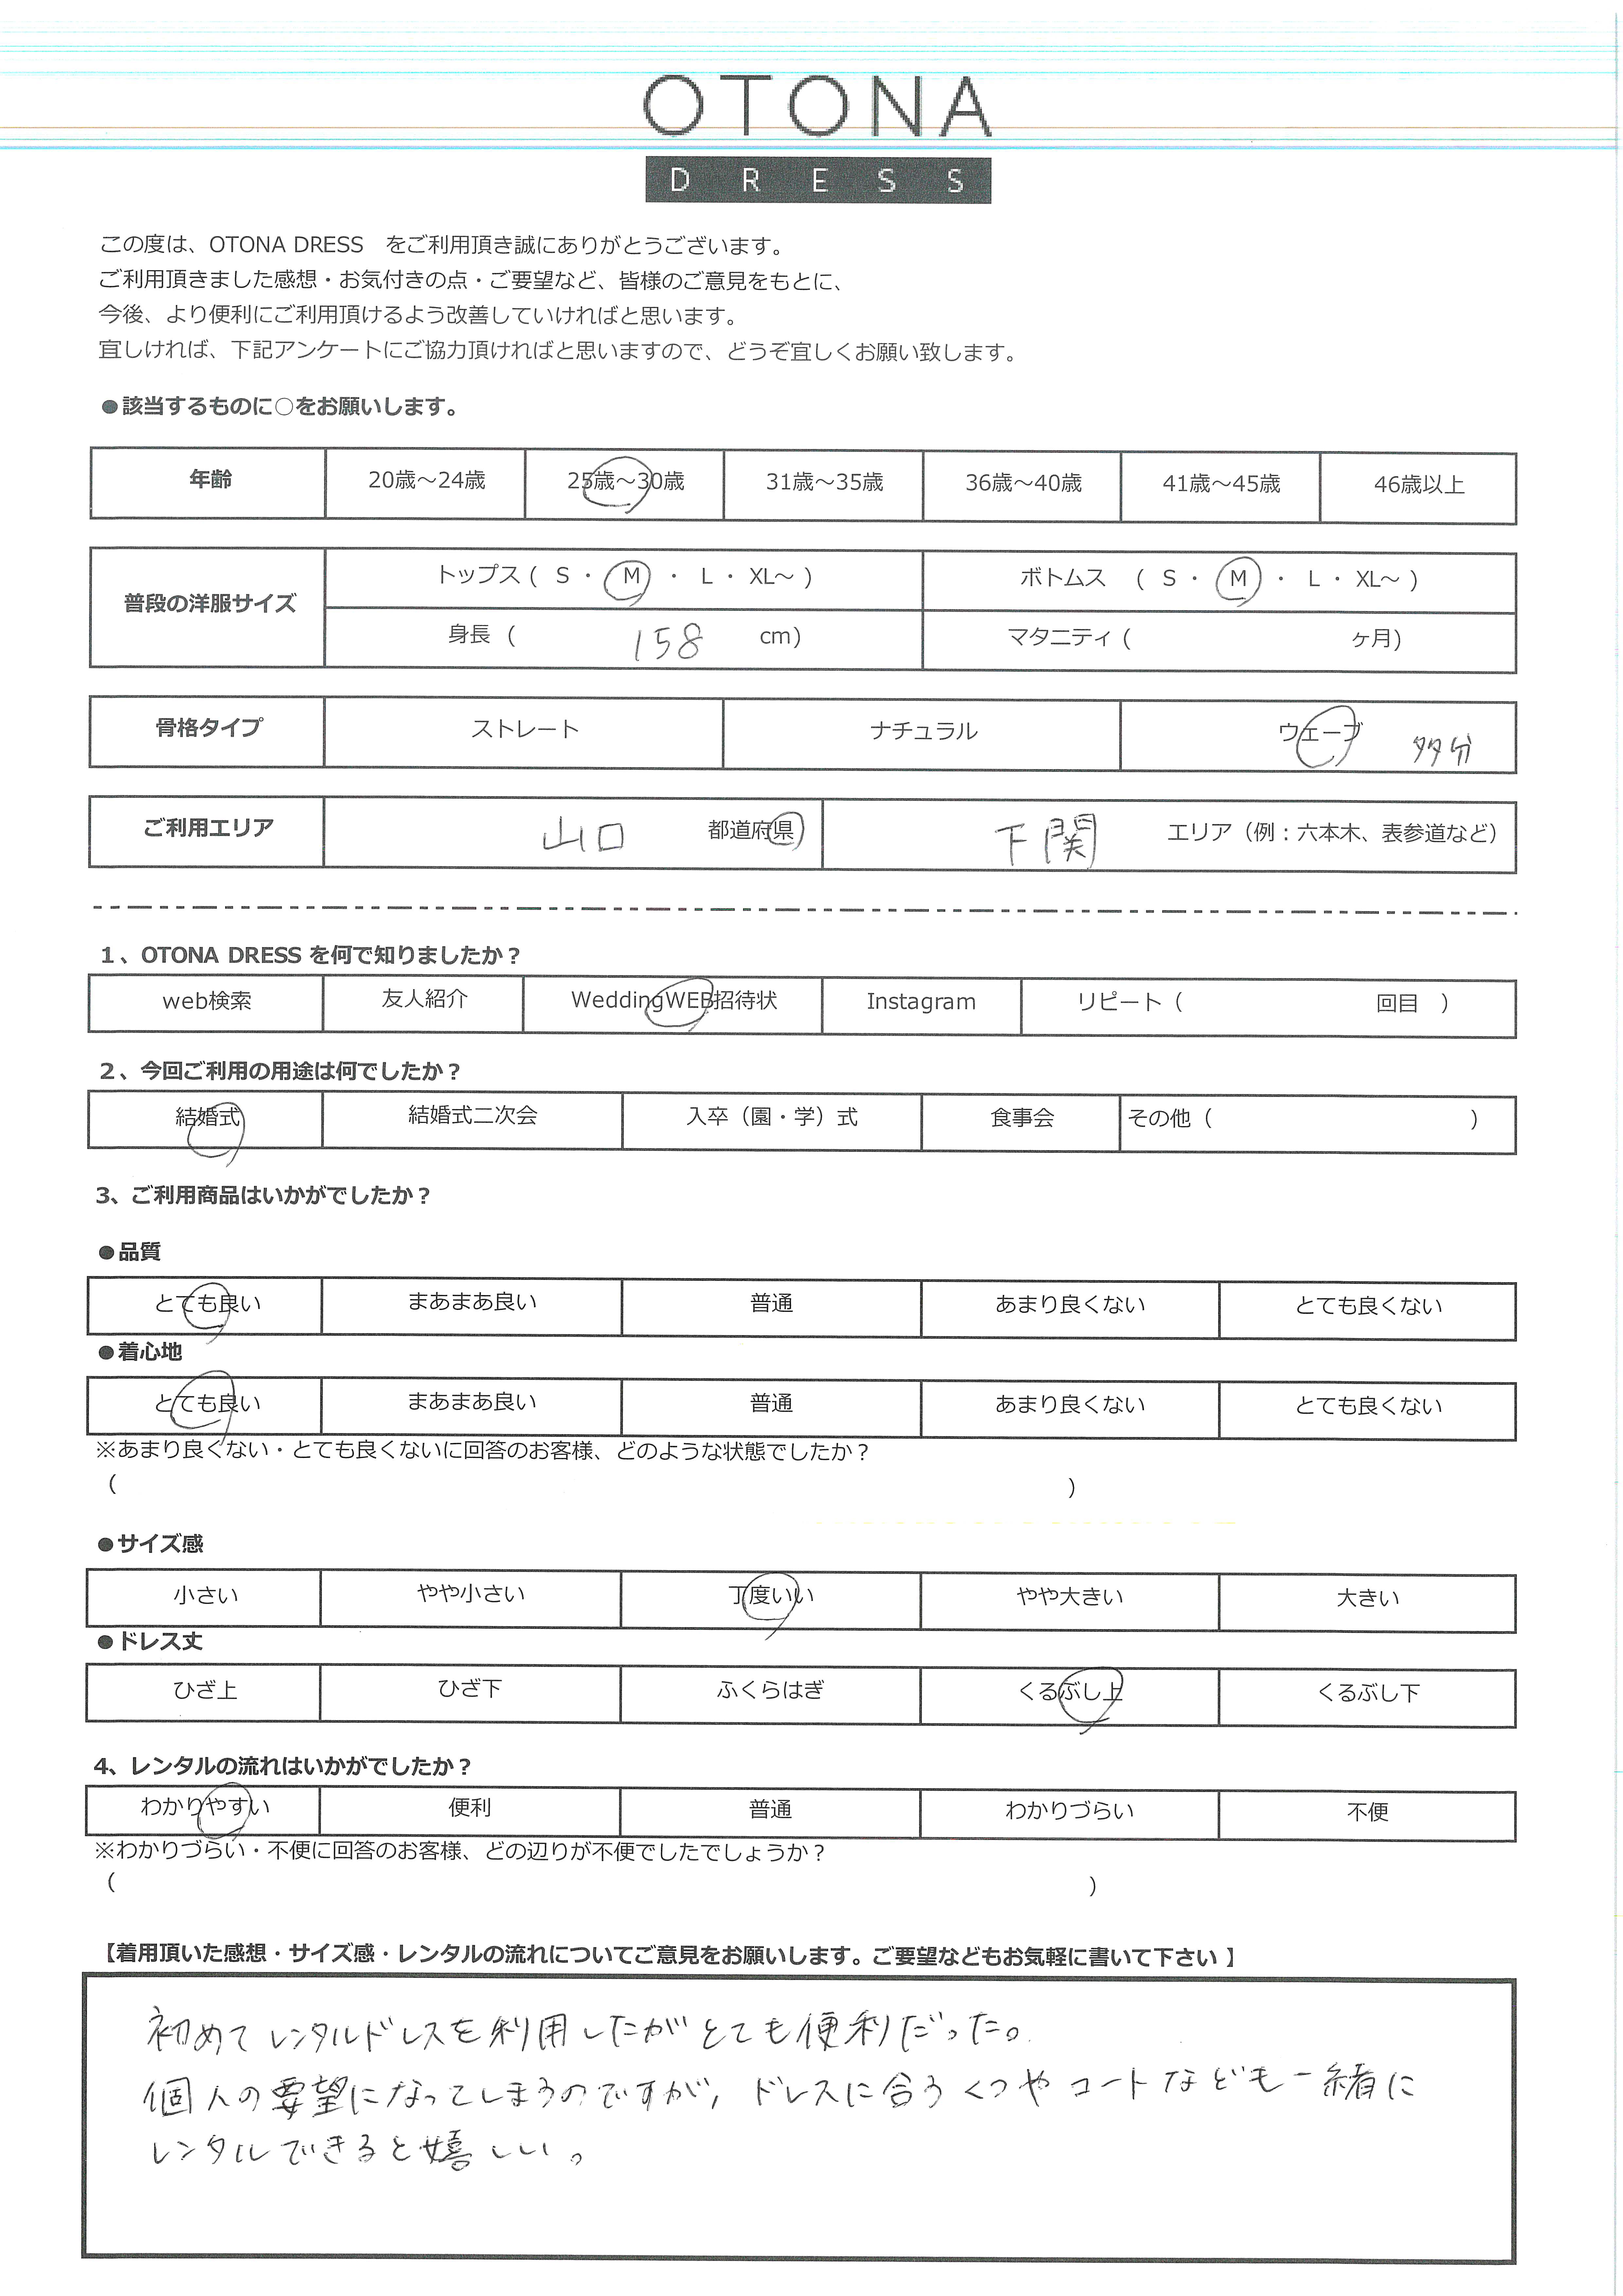 OTONA
DRESS
この度は、OTONA DRESS　をご利用頂き誠にありがとうございます。
ご利用頂きました感想・お気付きの点・ご要望など、皆様のご意見をもとに、
今後、より便利にご利用頂けるよう改善していければと思います。
宜しければ、下記アンケートにご協力頂ければと思いますので、どうぞ宜しくお願い致します。
●該当するものに○をお願いします。
年齢 20歳～24歳 25歳～30歳 31歳～35歳 36歳～40歳 41歳～45歳 46歳以上
普段の洋服サイズ
トップス ( S ・ M ・ L ・ XL～ ) ボトムス ( S ・ M ・ L ・ XL～ )
身長 ( 158 cm) マタニティ ( ヶ月)
骨格タイプ ストレート ナチュラル ウェーブ 多分
ご利用エリア 山口 都道府県 下関 エリア（例：六本木、表参道など）
1、OTONA DRESS を何で知りましたか？
web検索 友人紹介 WeddingWEB招待状 Instagram リピート（ 回目 ）
2、今回ご利用の用途は何でしたか？
結婚式 結婚式二次会 入卒（園・学）式 食事会 その他（ ）
3、ご利用商品はいかがでしたか？
●品質
とても良い まあまあ良い 普通 あまり良くない とても良くない
●着心地
とても良い まあまあ良い 普通 あまり良くない とても良くない
※あまり良くない・とても良くないに回答のお客様、どのような状態でしたか？
（ ）
●サイズ感
小さい やや小さい 丁度いい やや大きい 大きい
●ドレス丈
ひざ上 ひざ下 ふくらはぎ くるぶし上 くるぶし下
4、レンタルの流れはいかがでしたか？
わかりやすい 便利 普通 わかりづらい 不便
※わかりづらい・不便に回答のお客様、どの辺りが不便でしたでしょうか？
（ ）
【着用頂いた感想・サイズ感・レンタルの流れについてご意見をお願いします。ご要望などもお気軽に書いて下さい 】
初めてレンタルドレスを利用したがとても便利だった。
個人の要望になってしまうのですが, ドレスに合うくつやコートなども一緒に
レンタルできると嬉しい。